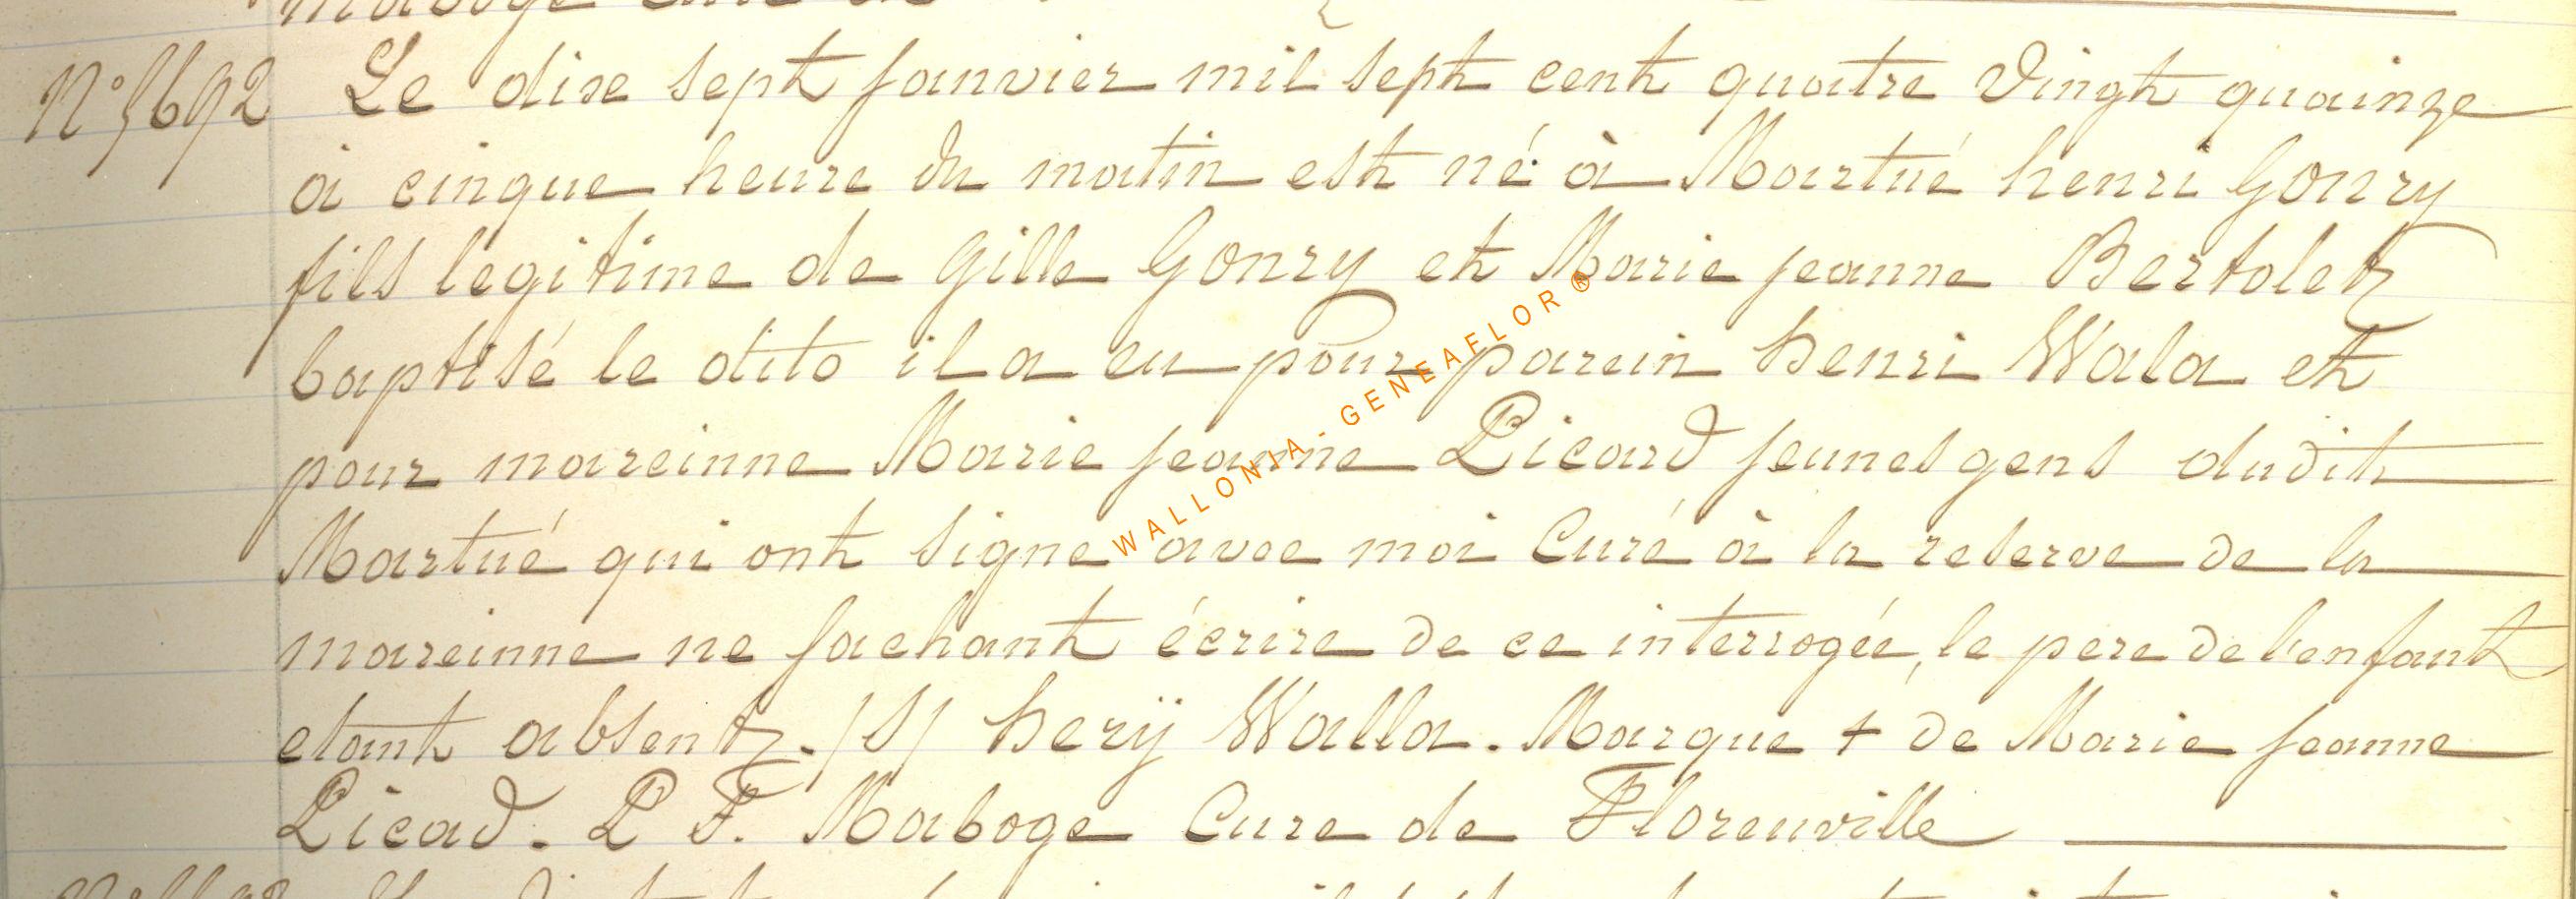 N° 5692 Le dixe sept janvier mil sept cent quatre vingt quainze
à cinque heure du matin est né à Martué henri Gonry
fils legitime de Gille Gonry et Marie jeanne Bertolet
baptisé le dito il a eu pour parein henri Wala et
pour mareinne Marie jeanne Picard jeunes gens dudit
Martué qui ont signe avec moi Curé à la reserve de la
mareinne ne sachant écrire de ce interrogée, le pere de l'enfant
etant absent. /S/ herij Walla. Marque + de Marie jeanne
Picad. P F. Maboge Cure de Florenville
WALLONIA - GENEAFLOR ®